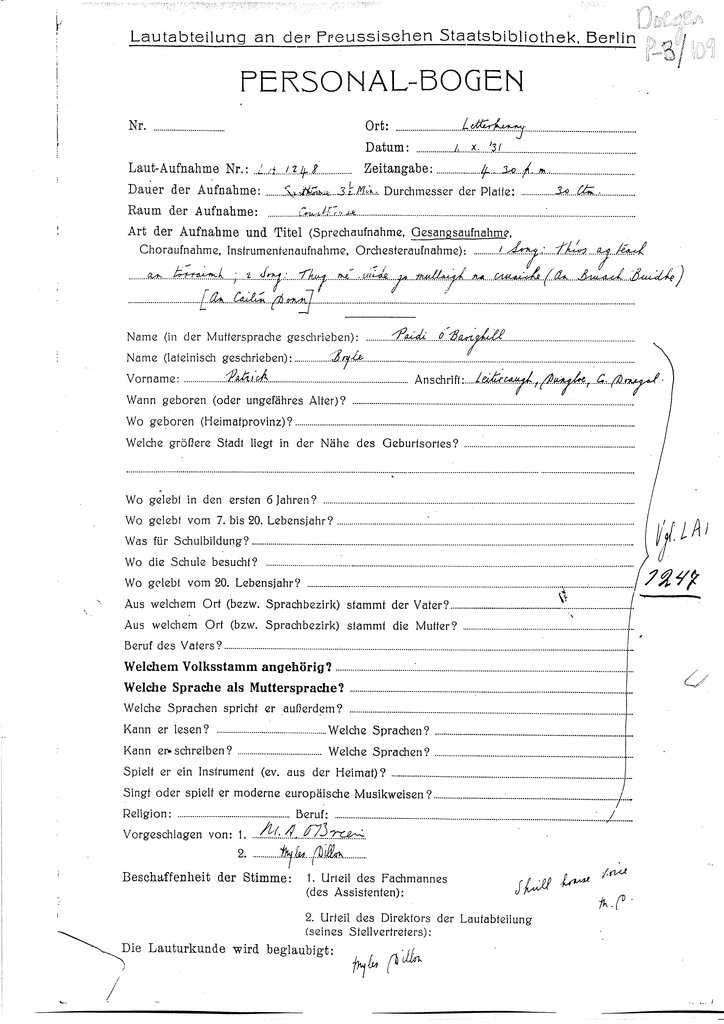 Doegen
P-3/109
Lautabteilung an der Preussischen Staatsbibliothek, Berlin
PERSONAL-BOGEN
Nr. Ort: Letterkenny
Datum: 1. X. '31
Laut-Aufnahme Nr.: LA 1248 Zeitangabe: 4.30 p.m.
Dauer der Aufnahme: 3½ Min. Durchmesser der Platte: 30 Ctm.
Raum der Aufnahme: Courthouse
Art der Aufnahme und Titel (Sprechaufnahme, Gesangsaufnahme,
Choraufnahme, Instrumentenaufnahme, Orchesteraufnahme): 1 Song: Thíos ag teach
an tórraimh; 2 Song: Thug mé ruide go mullaigh na cruaiche (An Bruach Buidhe)
[An Cailín Donn]
Name (in der Muttersprache geschrieben): Paidi Ó Baoighill
Name (lateinisch geschrieben): Boyle
Vorname: Patrick Anschrift: Leitircaugh, Dungloe, Co. Donegal.
Wann geboren (oder ungefähres Alter)?
Wo geboren (Heimatprovinz)?
Welche größere Stadt liegt in der Nähe des Geburtsortes?
Wo gelebt in den ersten 6 Jahren?
Wo gelebt vom 7. bis 20. Lebensjahr?
Was für Schulbildung?
Wo die Schule besucht?
Wo gelebt vom 20. Lebensjahr?
Vgl. LA 1247
Aus welchem Ort (bezw. Sprachbezirk) stammt der Vater?
Aus welchem Ort (bzw. Sprachbezirk) stammt die Mutter?
Beruf des Vaters?
Welchem Volksstamm angehörig?
Welche Sprache als Muttersprache?
Welche Sprachen spricht er außerdem?
Kann er lesen? Welche Sprachen?
Kann er schreiben? Welche Sprachen?
Spielt er ein Instrument (ev. aus der Heimat)?
Singt oder spielt er moderne europäische Musikweisen?
Religion: Beruf:
Vorgeschlagen von: 1. M. A. O'Brien
2. Myles Dillon
Beschaffenheit der Stimme: 1. Urteil des Fachmannes
(des Assistenten): Shrill hoarse voice
M.D.
2. Urteil des Direktors der Lautabteilung
(seines Stellvertreters):
Die Lauturkunde wird beglaubigt:
Myles Dillon